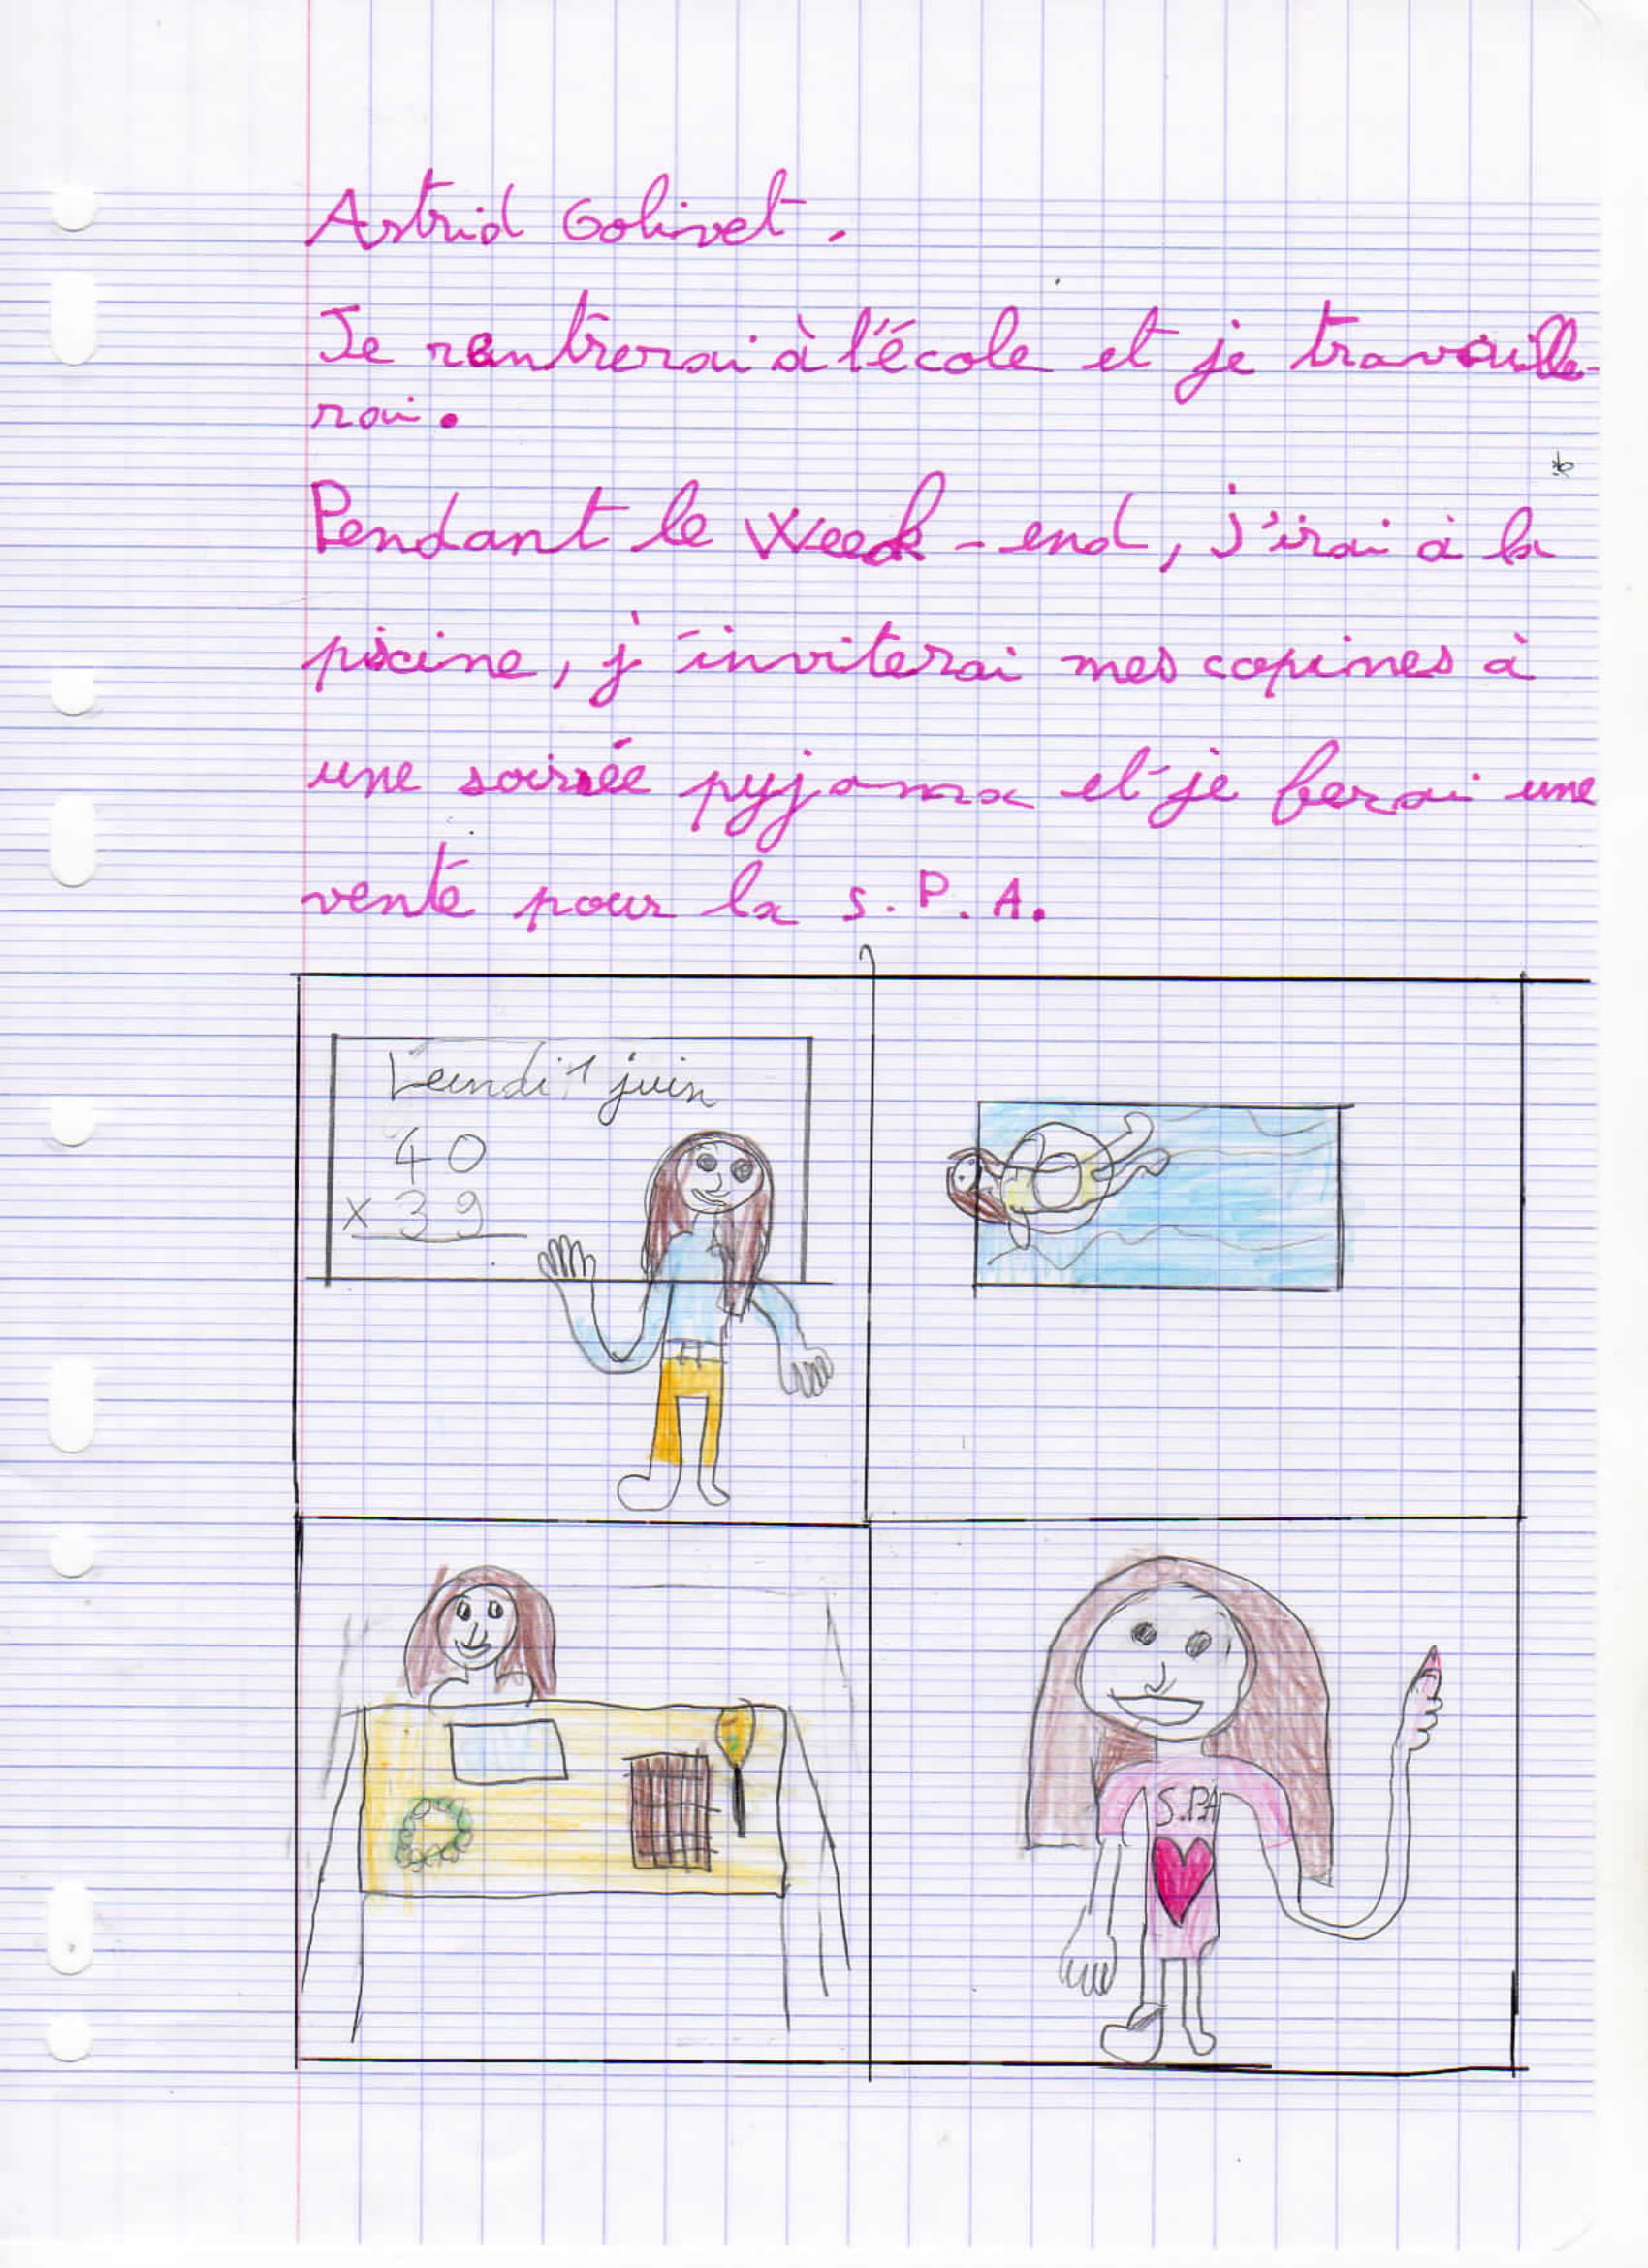 Astrid Golivet.
Je rentrerai à l'école et je travaille-
rai.
Pendant le Week-end, j'irai à la
piscine, j'inviterai mes copines à
une soirée pyjama et je ferai une
vente pour la S.P.A.
Lundi 1 juin
40
x 39
S.PA